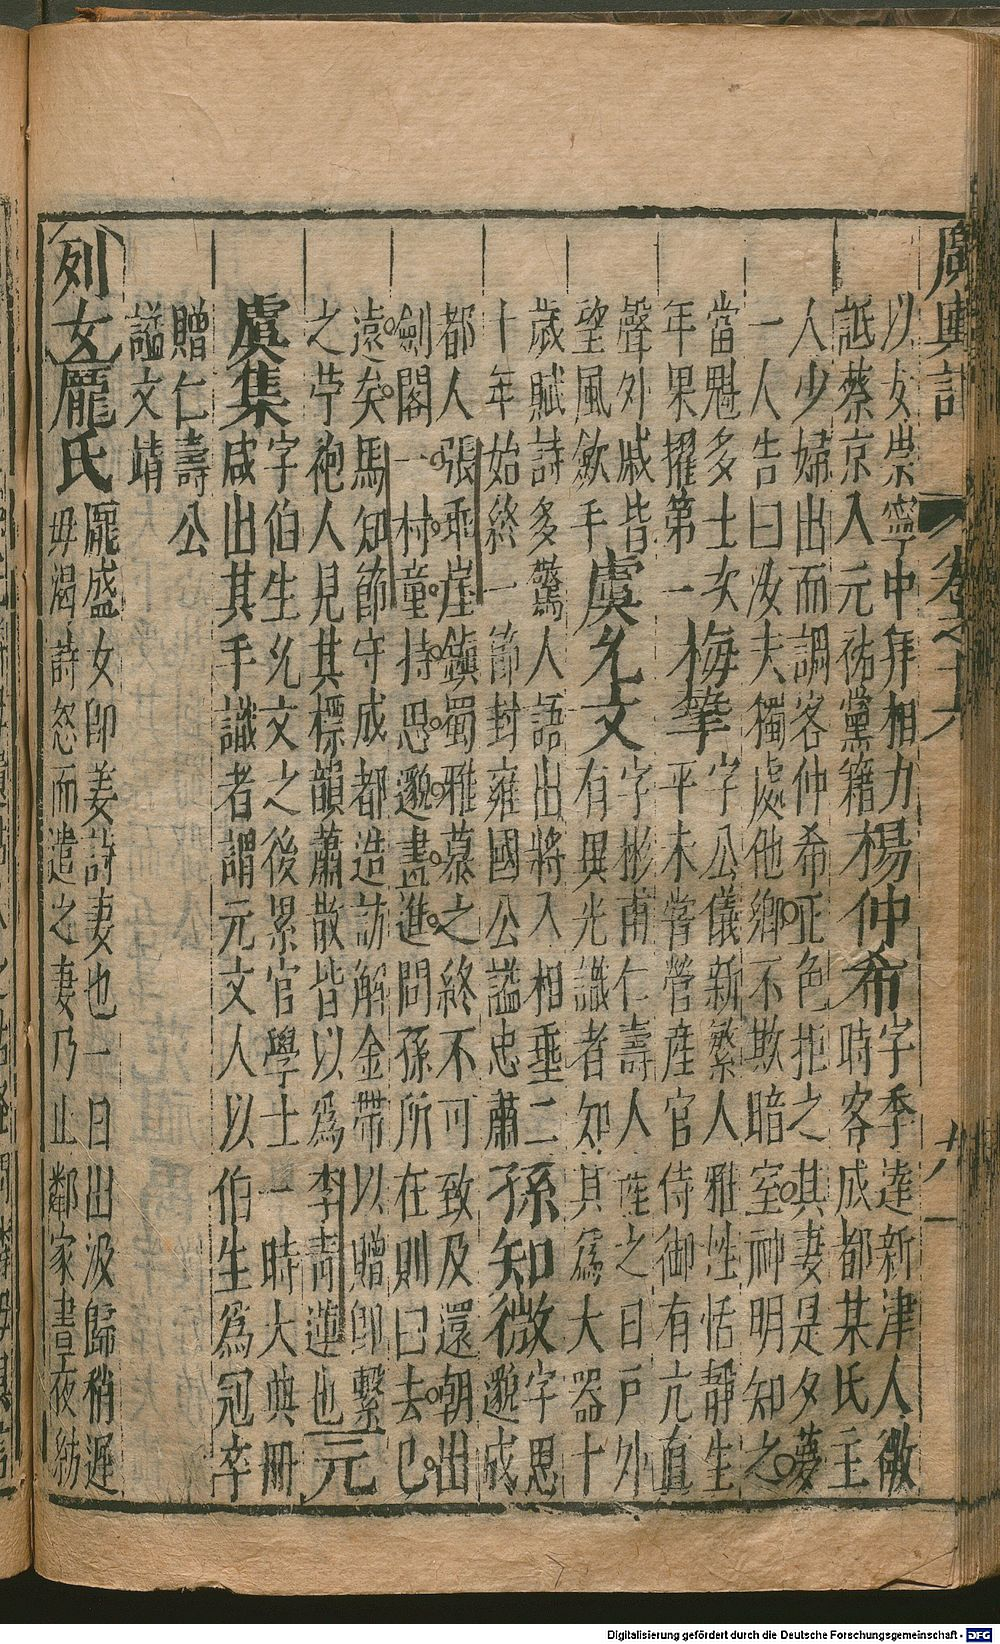 廣輿記 卷之十六 十八
以安崇寧中拜相力
詆蔡京入元祐黨籍
楊仲希
字季達新津人微
時客成都某氏主
人少婦出而調客仲希正色拒之其妻是夕夢
一人告曰汝夫獨處他鄉不欺暗室神明知之
當魁多士次
年果擢第一
梅摯
字公儀新繁人雅性恬靜生
平未嘗營產官侍御有亢直
聲外戚皆
望風歛手
虞允文
字彬甫仁壽人產之日戶外
有異光識者知其爲大器十
歲賦詩多驚人語出將入相垂二
十年始終一節封雍國公謚忠肅
孫知微
字思
邈成
都人張乖崖鎮蜀雅慕之終不可致及還朝出
劍閣一村童持思邈畫進問孫所在則曰去已
遠矣馬知節守成都造訪解金帶以贈卽繫
之苧袍人見其標韻蕭散皆以爲李青蓮也
元
虞集
字伯生允文之後累官學士一時大典冊
咸出其手識者謂元文人以伯生爲冠卒
贈仁壽公
謚文靖
列女
龐氏
龐盛女卽姜詩妻也一日出汲歸稍遲
母渴詩怒而遣之妻乃止鄰家晝夜紡
Digitalisierung gefördert durch die Deutsche Forschungsgemeinschaft - DFG